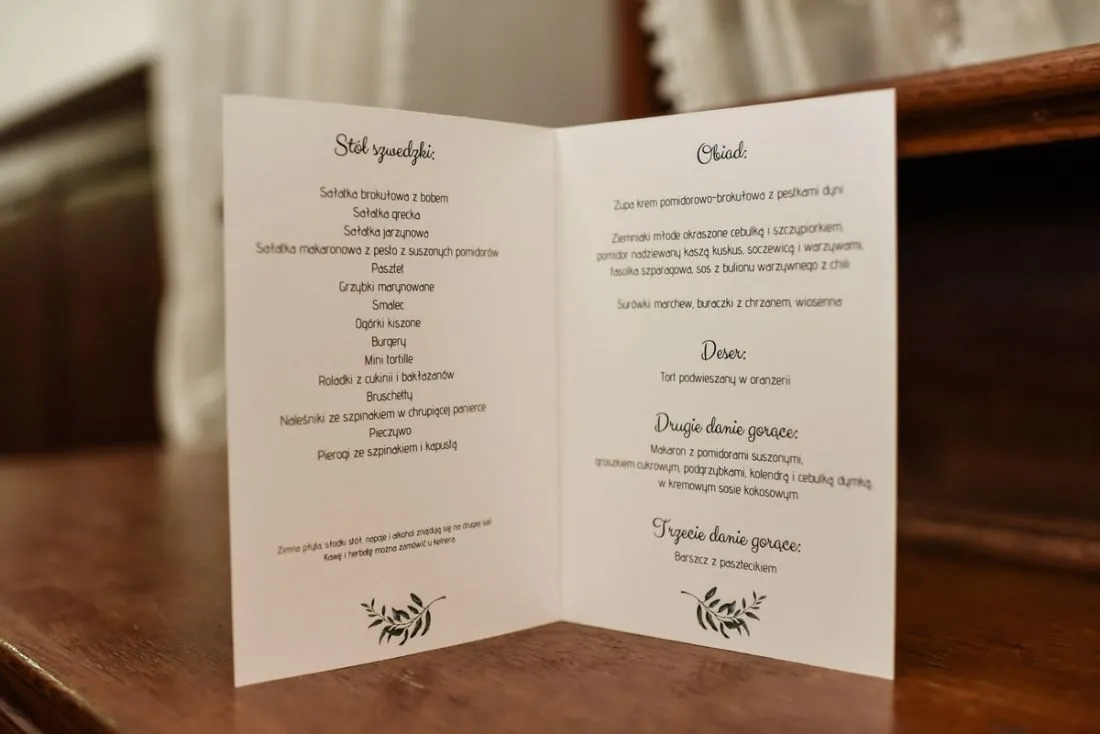 Stół szwedzki:
Sałatka brokułowa z bobem
Sałatka grecka
Sałatka jarzynowa
Sałatka makaronowa z pesto z suszonych pomidorów
Pasztet
Grzybki marynowane
Smalec
Ogórki kiszone
Burgery
Mini tortille
Roladki z cukinii i bakłażanów
Bruschetty
Naleśniki ze szpinakiem w chrupiącej panierce
Pieczywo
Pierogi ze szpinakiem i kapustą
Zimna płyta, słodki stół, napoje i alkohol znajdują się na drugiej sali
Kawę i herbatę można zamówić u kelnera
Obiad:
Zupa krem pomidorowo-brokułowa z pestkami dyni
Ziemniaki młode okraszone cebulką i szczypiorkiem,
pomidor nadziewany kaszą kuskus, soczewicą i warzywami,
fasolka szparagowa, sos z bulionu warzywnego z chili
Surówki marchew, buraczki z chrzanem, wiosenna
Deser:
Tort podwieszany w oranżerii
Drugie danie gorące:
Makaron z pomidorami suszonymi,
groszkiem cukrowym, podgrzybkami, kolendrą i cebulką dymką,
w kremowym sosie kokosowym
Trzecie danie gorące:
Barszcz z pasztecikiem